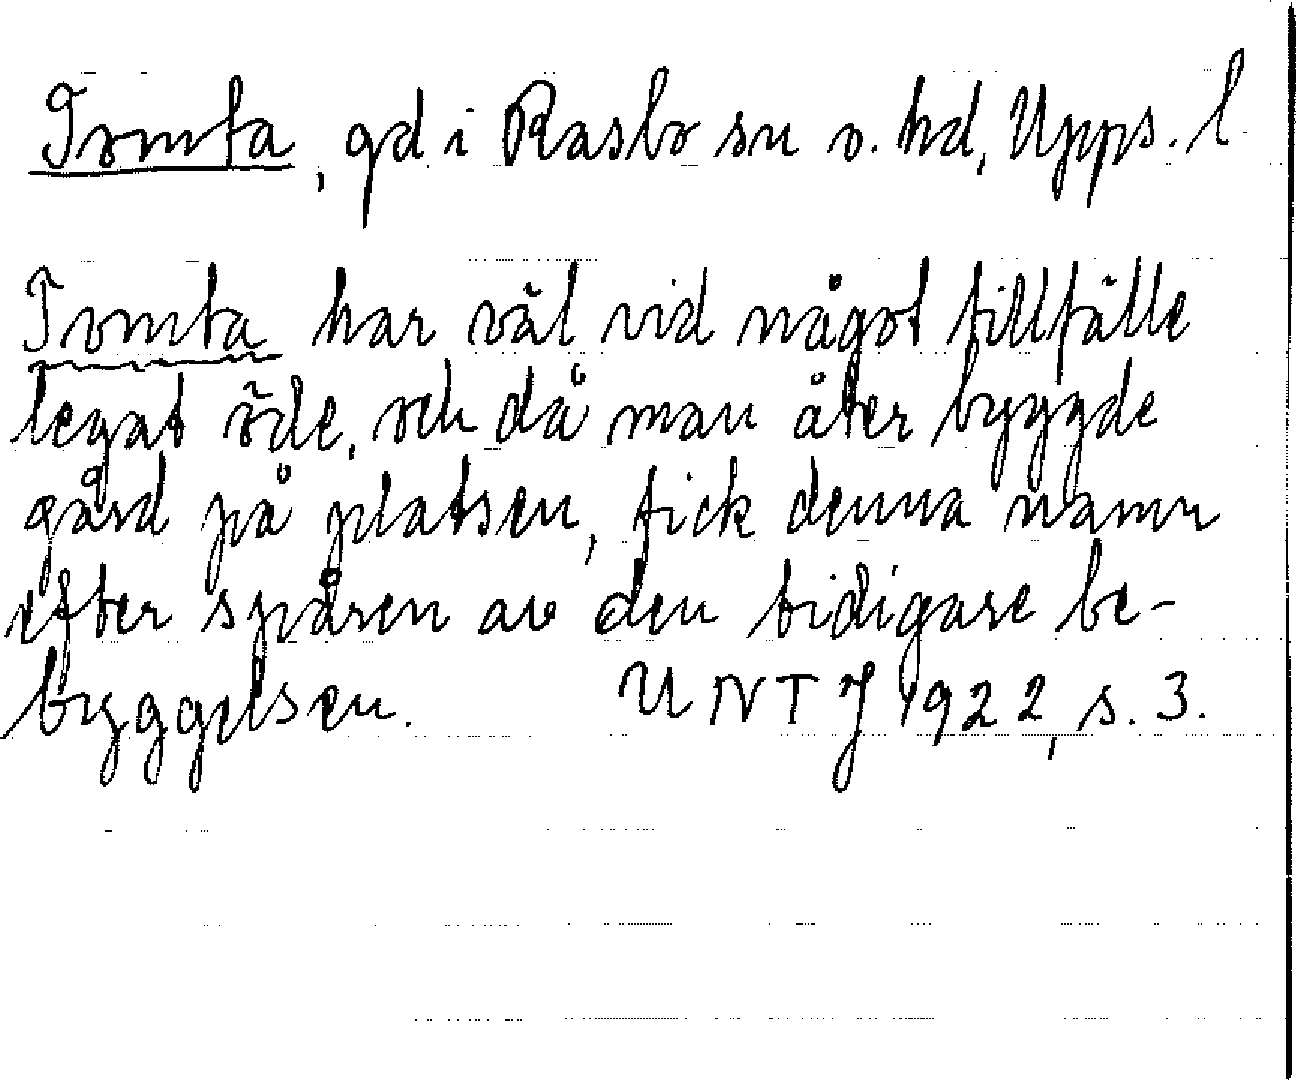 Tomta, gd i Rasbo sn o. hd, Upps. l
Tomta har väl vid något tillfälle
legat öde, och då man åter byggde
gård på platsen, fick denna namn
efter spåren av den tidigare be-
byggelsen. UNTJ 1922, s. 3.